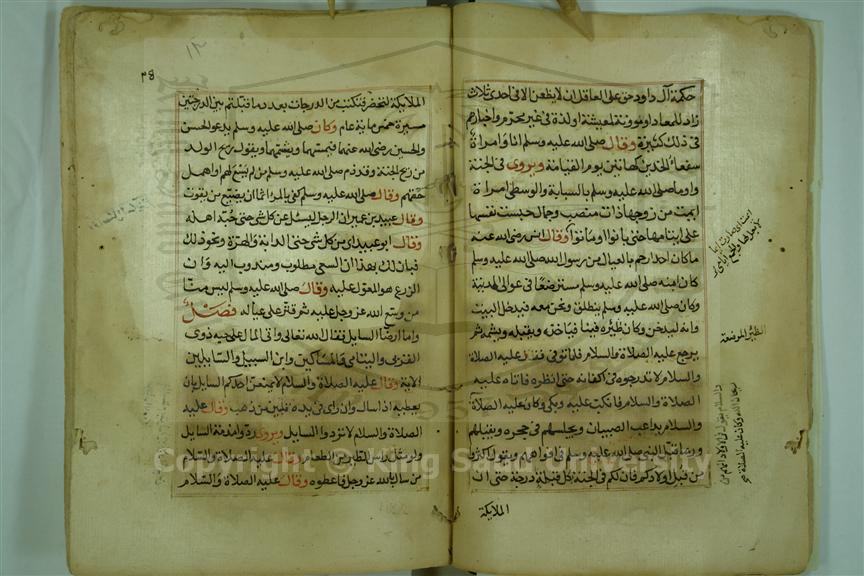 حكمة آل داود حق على العاقل ان لا يظعن الا في احدى ثلاث
زاد لمعاد او مونة لمعيشة او لذة في غير محرم واخبارهم
في ذلك كثيرة وقال صلى الله عليه وسلم انا وامراة
سفعاء الخدين كهاتين يوم القيامة ويروى في الجنة
واوما صلى الله عليه وسلم بالسبابة والوسطى امراة
ايمت من زوجها ذات منصب وجمال حبست نفسها
على ايتامها حتى بانوا او ماتوا وقال انس رضي الله عنه
ما كان احد ارحم بالعيال من رسول الله صلى الله عليه وسلم
كان ابنه صلى الله عليه وسلم مسترضعا في عوالي المدينة
وكان صلى الله عليه وسلم ينطلق ونحن معه فيدخل البيت
وانه ليدخن وكان ظئره قينا فياخذه ويقبله ويشمه ثم
يرجع عليه الصلاة والسلام فلما توفي فقال عليه الصلاة
والسلام لا تدرجوه في اكفانه حتى انظره فاتاه عليه
الصلاة والسلام فانكب عليه وبكى وكان عليه الصلاة
والسلام يداعب الصبيان ويجلسهم في حجره ويقبلهم
وربما قبل النبي صلى الله عليه وسلم في افواههم ويقول اكثروا
من قبل اولادكم فان لكم في الجنة بكل قبلة درجة حتى ان
الملايكة
الظئر المرضعة
٣٨
الملايكة لتحضر فتكتب من الدرجات بعدد ما قبلتم بين الدرجتين
مسيرة خمس ماية عام وكان صلى الله عليه وسلم يدعو الحسن
والحسين رضي الله عنهما فيمسهما ويشمهما ويقول ريح الولد
من ريح الجنة وقد ذم صلى الله عليه وسلم من لم يتسع لهم واهمل
حقهم وقال صلى الله عليه وسلم كفى بالمرء اثما ان يضيع من يقوت
وقال عبيد بن عمير ان الرجل ليسئل عن كل شي حتى حية اهله
وقال ابو عبيد اي من كل شي حتى الدابة والهرة ونحو ذلك
فبان لك بهذا ان السعي مطلوب ومندوب اليه وان
الزرع هو المعول عليه وقال صلى الله عليه وسلم ليس منا
من وسع الله عز وجل عليه ثم قتر على عياله فصل
واما ارضا السايل فقال الله تعالى واتى المال على حبه ذوي
القربى واليتامى والمساكين وابن السبيل والسايلين
الاية وقال عليه الصلاة والسلام لا يمنعن احدكم السايل بان
يعطيه اذا سال وان راى في يده قلبين من ذهب وقال عليه
الصلاة والسلام لا تردوا السايل ويروى ردوا مذمة السايل
ولو بمثل راس الطير من الطعام وقال عليه الصلاة والسلام
من سال بالله عز وجل فاعطوه وقال عليه الصلاة والسلام
Copyright © King Saud University